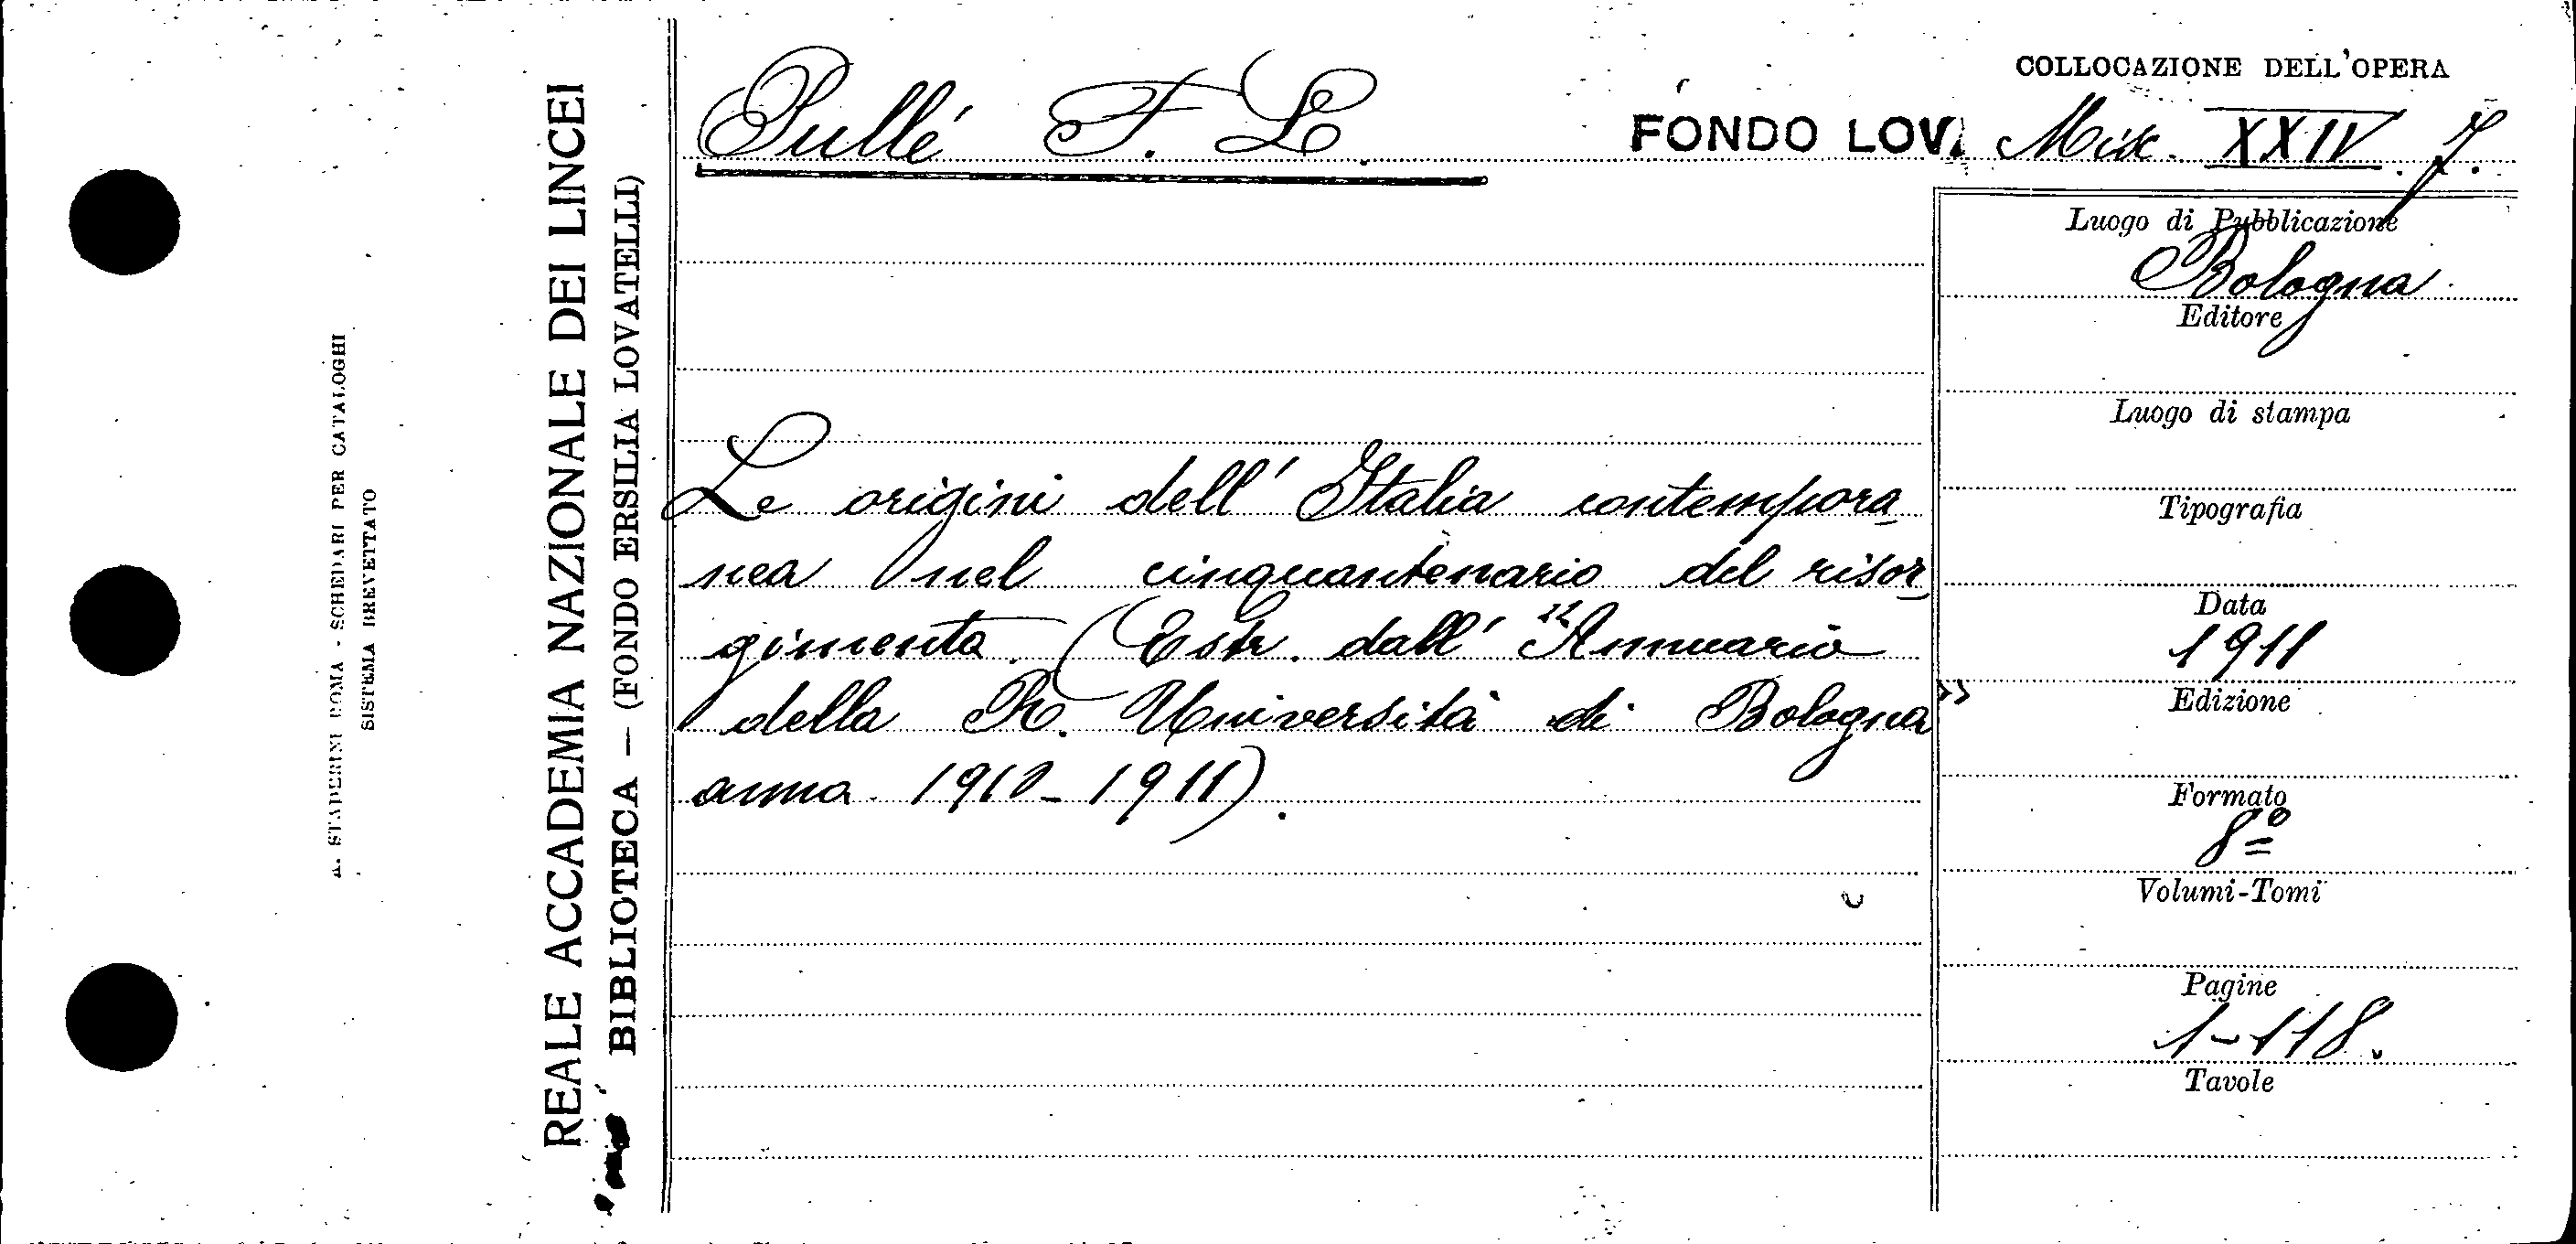 COLLOCAZIONE DELL'OPERA
Pullé F. L.
FONDO LOV. Misc. XXIV. 7.
REALE ACCADEMIA NAZIONALE DEI LINCEI
BIBLIOTECA — (FONDO ERSILIA LOVATELLI)
A. STADERINI ROMA - SCHEDARI PER CATALOGHI
SISTEMA BREVETTATO
Le origini dell' Italia contempora-
nea nel cinquantenario del risor-
gimento. (Estr. dall' "Annuario
della R. Università di Bologna"
anno 1910-1911).
Luogo di Pubblicazione
Bologna
Editore
Luogo di stampa
Tipografia
Data
1911
Edizione
Formato
8º
Volumi-Tomi
Pagine
1-118.
Tavole